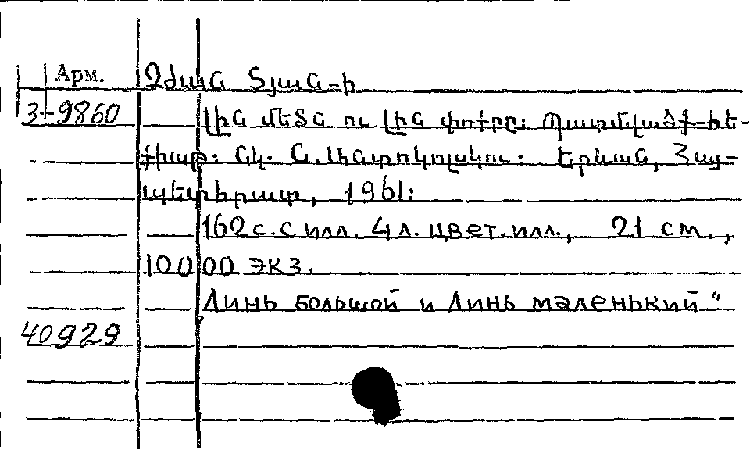 Арм. Չժան Տյան-ի
3-9860 Լին մեծն ու Լին փոքրը: Պատմվածք-հե-
քիաթ: Նկ. Ն. Երևան, Հայ-
պետհրատ, 1961:
162 с. с илл. 4 л. цвет. илл., 21 см.,
10000 экз.
Линь большой и Линь маленький"
40929